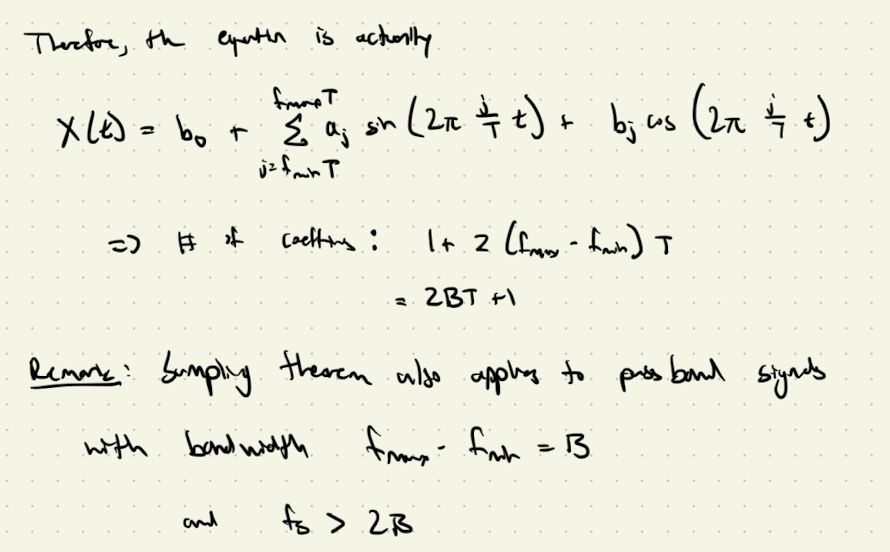 Therefore, the equation is actually
X(t) = b₀ + Σ_{j=f_min T}^{f_max T} a_j sin(2π j/T t) + b_j cos(2π j/T t)
=> # of coeffins: 1 + 2 (f_max - f_min) T
= 2BT + 1
Remark: Sampling theorem also applies to pass band signals
with bandwidth f_max - f_min = B
and f_s > 2B